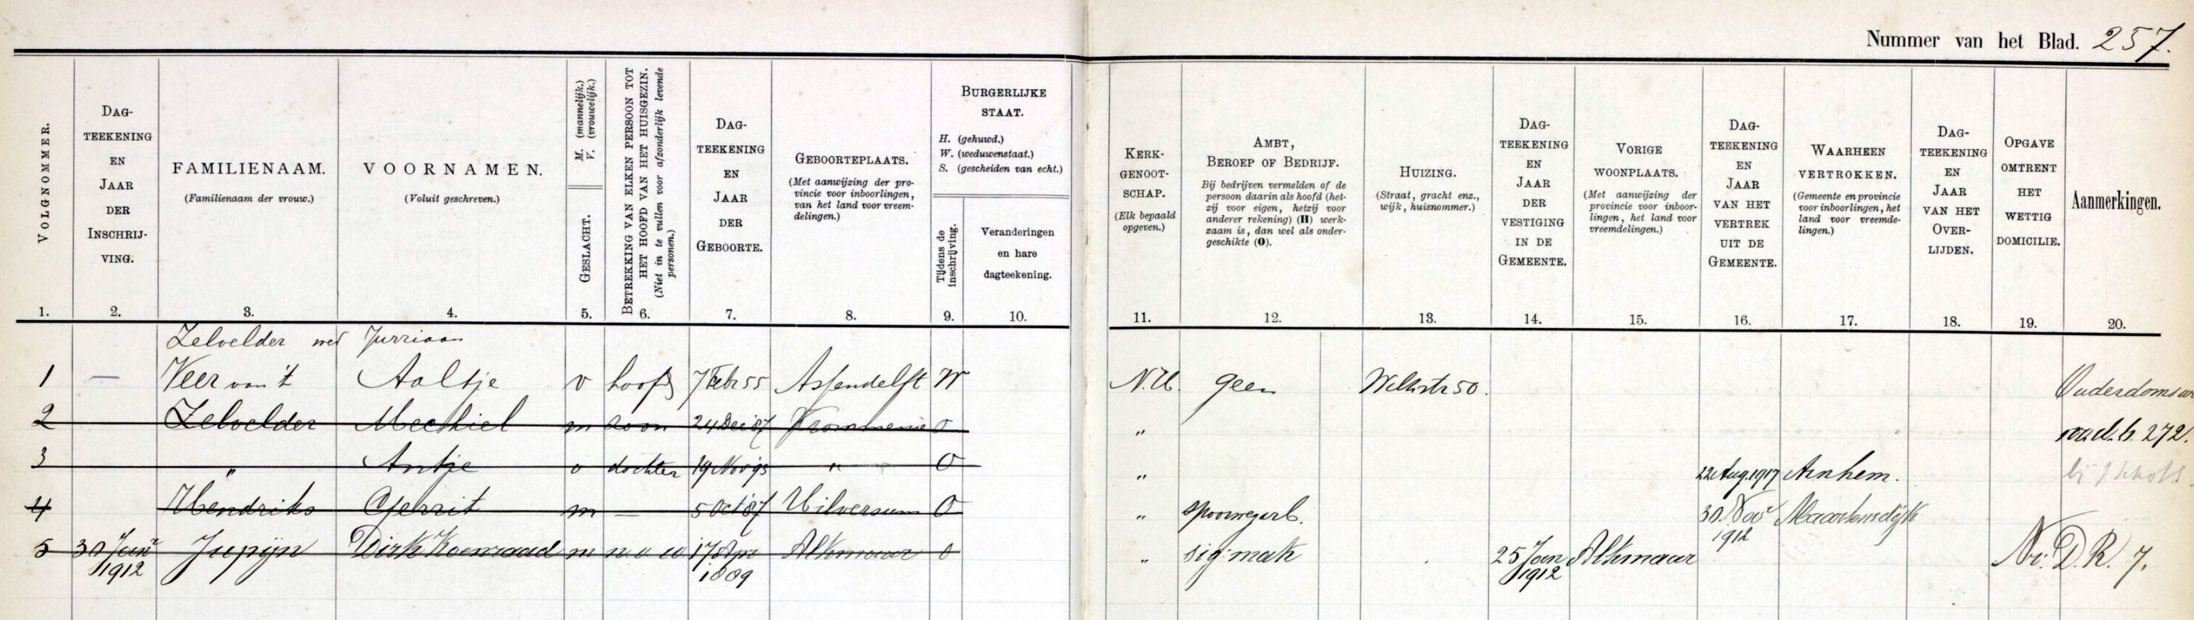 Nummer van het Blad. 257.
VOLGNOMMER.
DAG-
TEEKENING
EN
JAAR
DER
INSCHRIJ-
VING.
FAMILIENAAM.
(Familienaam der vrouw.)
VOORNAMEN.
(Voluit geschreven.)
M. (mannelijk.)
V. (vrouwelijk.)
GESLACHT.
BETREKKING VAN ELKEN PERSOON TOT
HET HOOFD VAN HET HUISGEZIN.
(Niet in te vullen voor afzonderlijk levende
personen.)
DAG-
TEEKENING
EN
JAAR
DER
GEBOORTE.
GEBOORTEPLAATS.
(Met aanwijzing der pro-
vincie voor inboorlingen,
van het land voor vreem-
delingen.)
BURGERLIJKE
STAAT.
H. (gehuwd.)
W. (weduwenstaat.)
S. (gescheiden van echt.)
Tijdens de
inschrijving.
Veranderingen
en hare
dagteekening.
KERK-
GENOOT-
SCHAP.
(Elk bepaald
opgeven.)
AMBT,
BEROEP OF BEDRIJF.
Bij bedrijven vermelden of de
persoon daarin als hoofd (het-
zij voor eigen, hetzij voor
anderer rekening) (H) werk-
zaam is, dan wel als onder-
geschikte (O).
HUIZING.
(Straat, gracht enz.,
wijk, huisnommer.)
DAG-
TEEKENING
EN
JAAR
DER
VESTIGING
IN DE
GEMEENTE.
VORIGE
WOONPLAATS.
(Met aanwijzing der
provincie voor inboor-
lingen, het land voor
vreemdelingen.)
DAG-
TEEKENING
EN
JAAR
VAN HET
VERTREK
UIT DE
GEMEENTE.
WAARHEEN
VERTROKKEN.
(Gemeente en provincie
voor inboorlingen, het
land voor vreemde-
lingen.)
DAG-
TEEKENING
EN
JAAR
VAN HET
OVER-
LIJDEN.
OPGAVE
OMTRENT
HET
WETTIG
DOMICILIE.
Aanmerkingen.
1. 2. 3. 4. 5. 6. 7. 8. 9. 10. 11. 12. 13. 14. 15. 16. 17. 18. 19. 20.
Zelvelder wed Jurriaan
1 — Veer van 't Aaltje v hoofd 7 Febr 55 Assendelft W N.H. geen
2 Zelvelder Mechiel m zoon 24 Dec 87 Krommenie O "
3 " Antje v dochter 19 Nov 93 " O " 22 Aug. 1917 Arnhem.
4 Hendriks Gerrit m — 5 Oct 87 Hilversum O " spoorwegarb. 30 Nov 1912 Maartensdijk
5 30 Jan 1912 Jupijn Dirk Koenraad m 17 Apr 1889 Alkmaar O " sig. mak 25 Jan 1912 Alkmaar